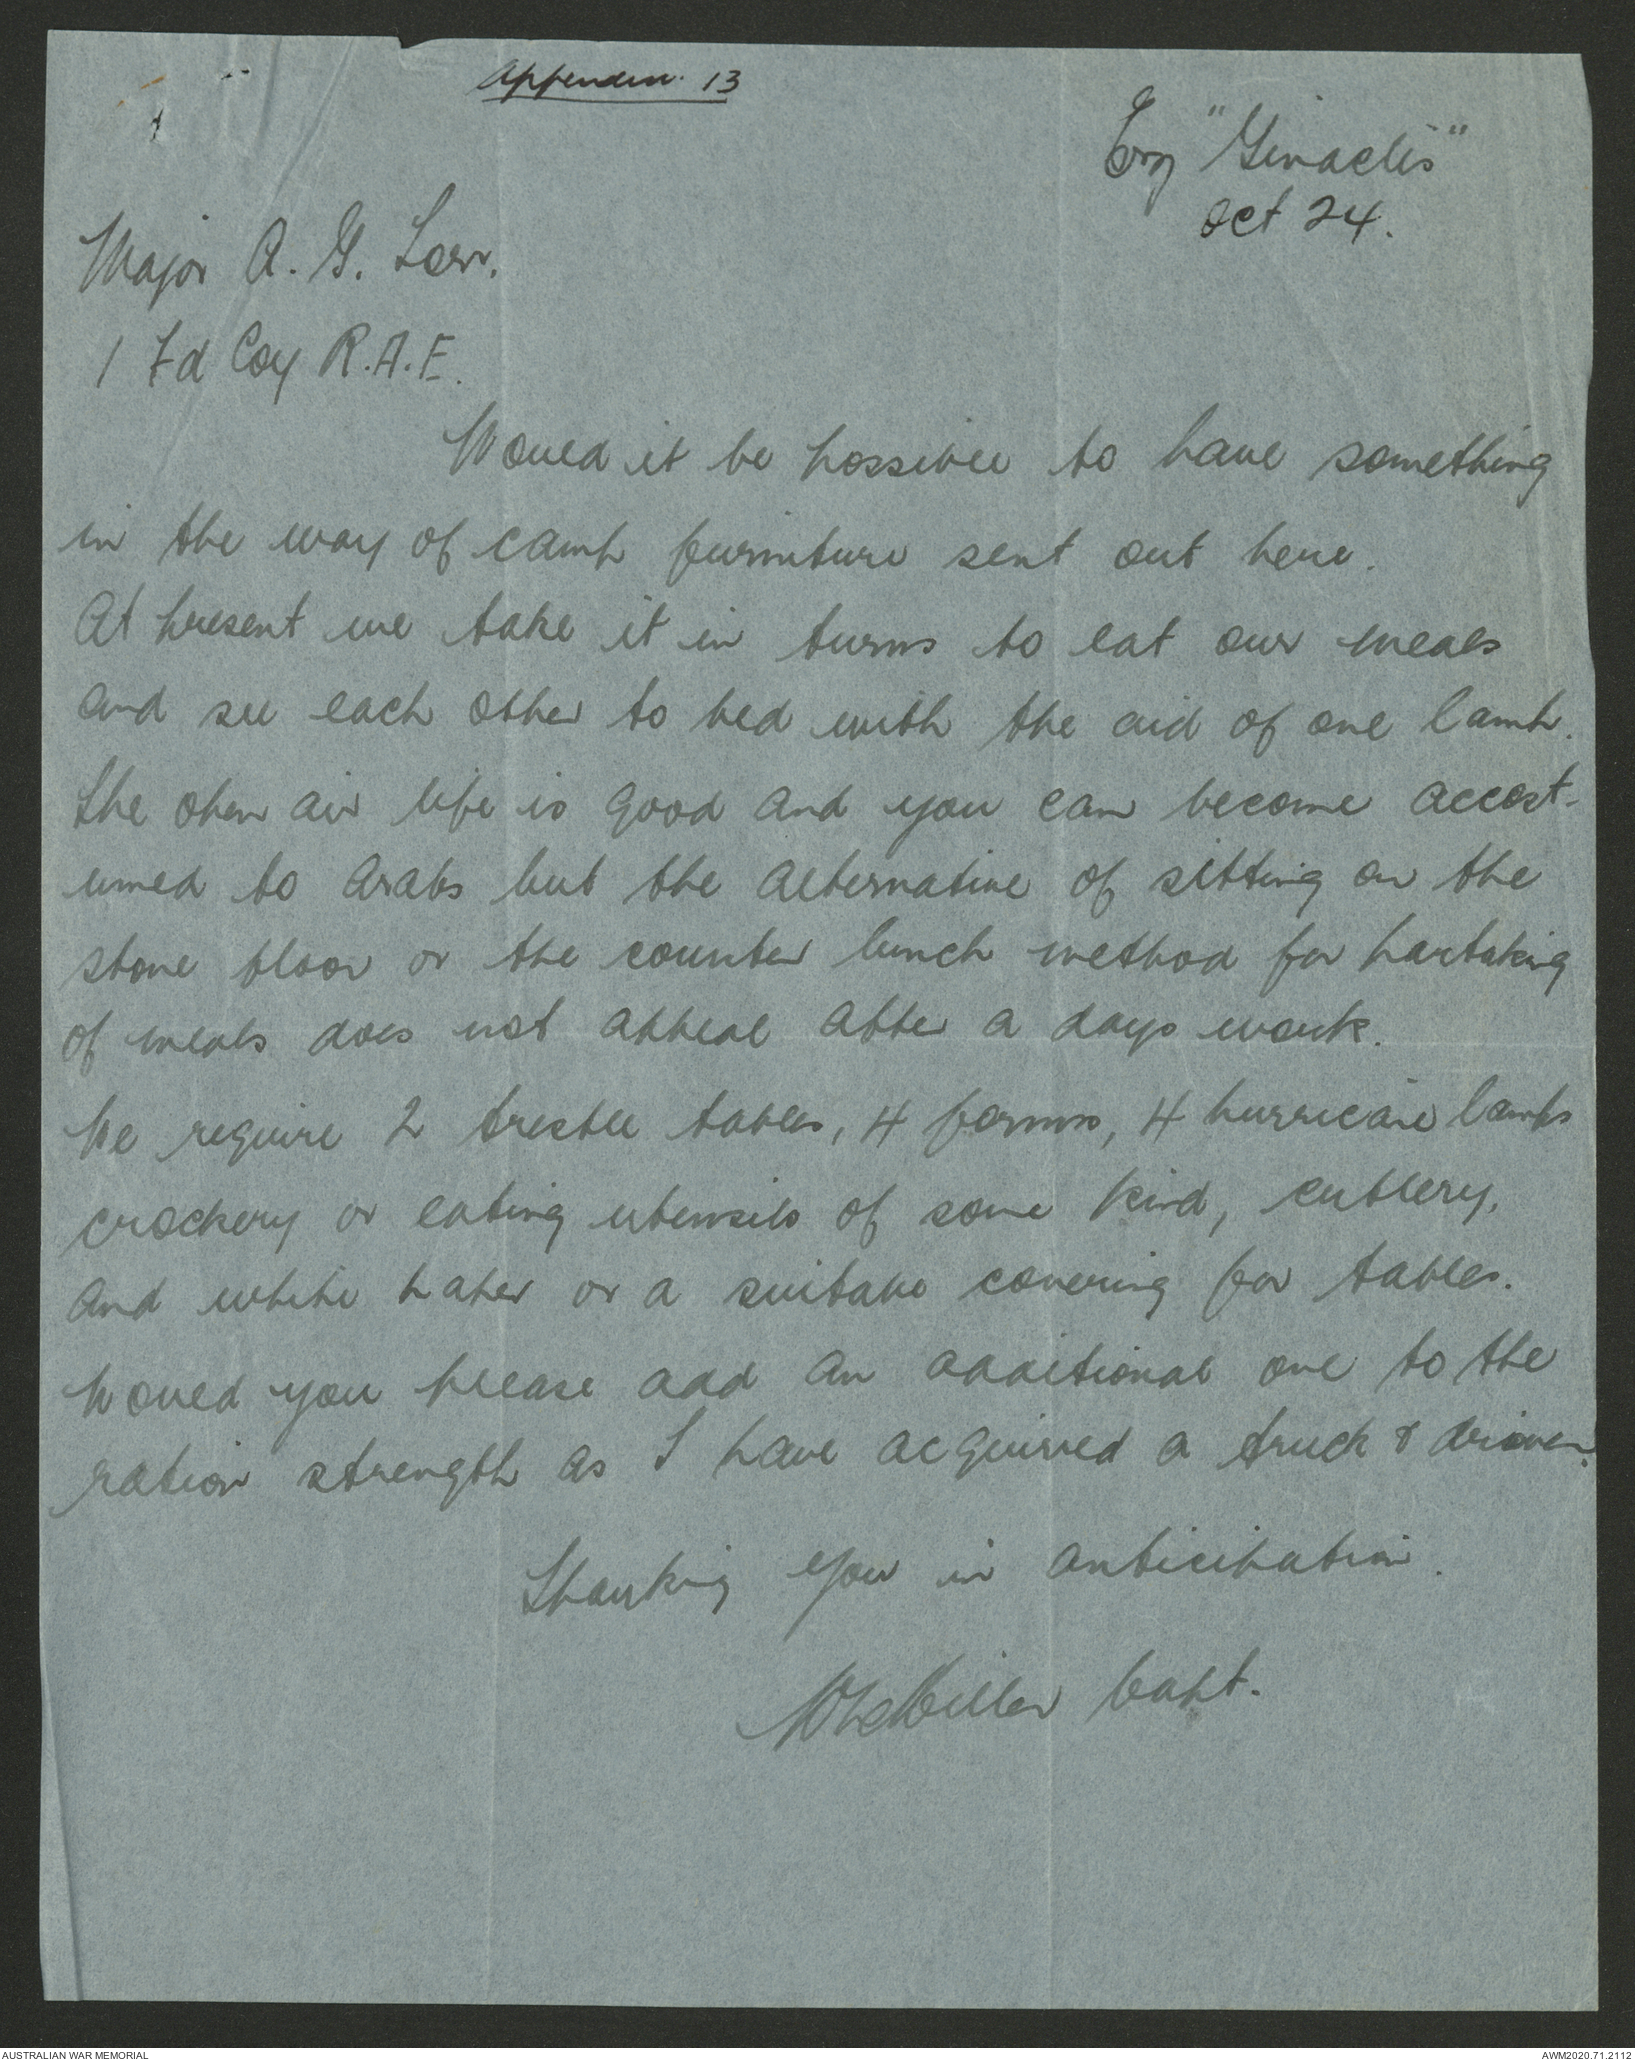 Appendix. 13
"Ginaclis"
Oct 24.
Major A. G. Low.
1 Fd Coy R.A.E.
Would it be possible to have something
in the way of camp furniture sent out here.
At present we take it in turns to eat our meals
and see each other to bed with the aid of one lamp.
The open air life is good and you can become accost-
umed to Arabs but the alternative of sitting on the
stone floor or the counter lunch method for partaking
of meals does not appeal after a days work.
We require 2 trestle tables, 4 forms, 4 hurricane lamps
crockery or eating utensils of some kind, cutlery,
and white paper or a suitable covering for tables.
Would you please add an additional one to the
ration strength as I have acquired a truck & driver.
Thanking you in anticipation.
Capt.
AUSTRALIAN WAR MEMORIAL
AWM2020.71.2112